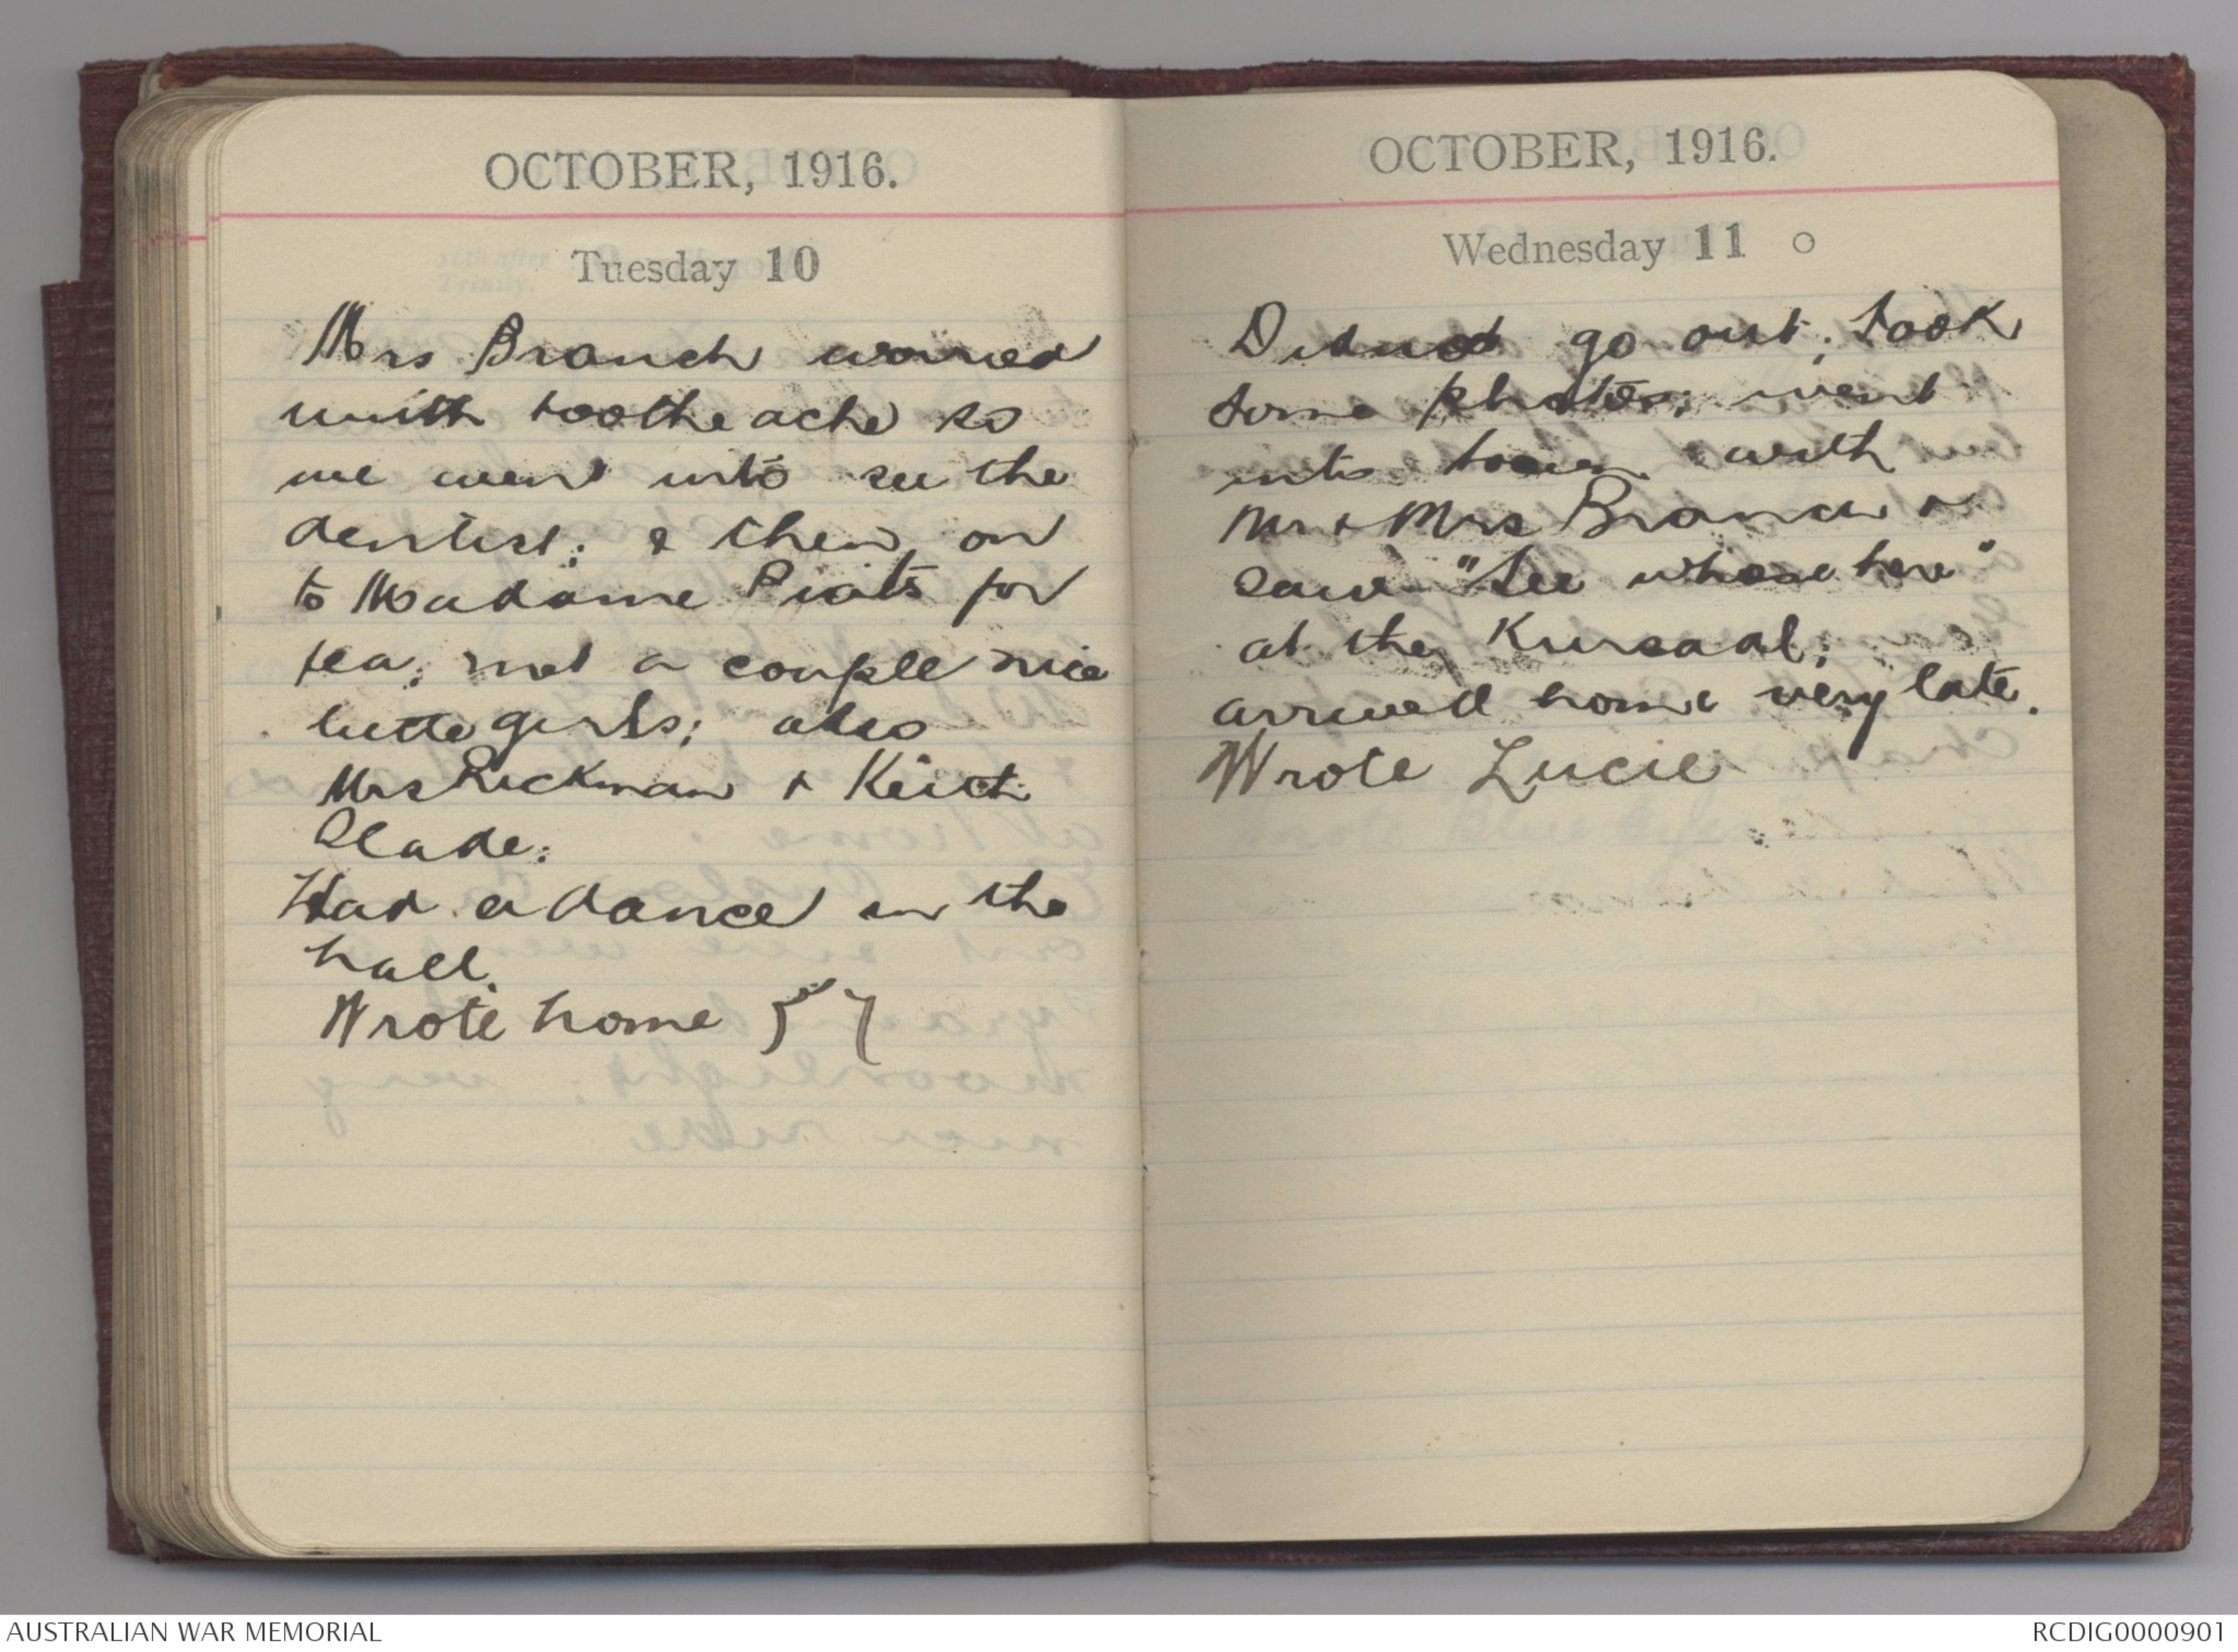 OCTOBER, 1916.
Tuesday 10
Mrs Branch worried
with toothe ache so
we went into see the
dentist; & then on
to Madame for
tea; met a couple nice
little girls; also
Mrs Rickman & Keith
Slade.
Had a dance in the
hall.
Wrote home
OCTOBER, 1916.
Wednesday 11 ○
Did not go out; took
some photos; went
into town with
Mr & Mrs Branch &
saw "See whose here"
at the Kursaal;
arrived home very late.
Wrote Lucie
AUSTRALIAN WAR MEMORIAL
RCDIG0000901